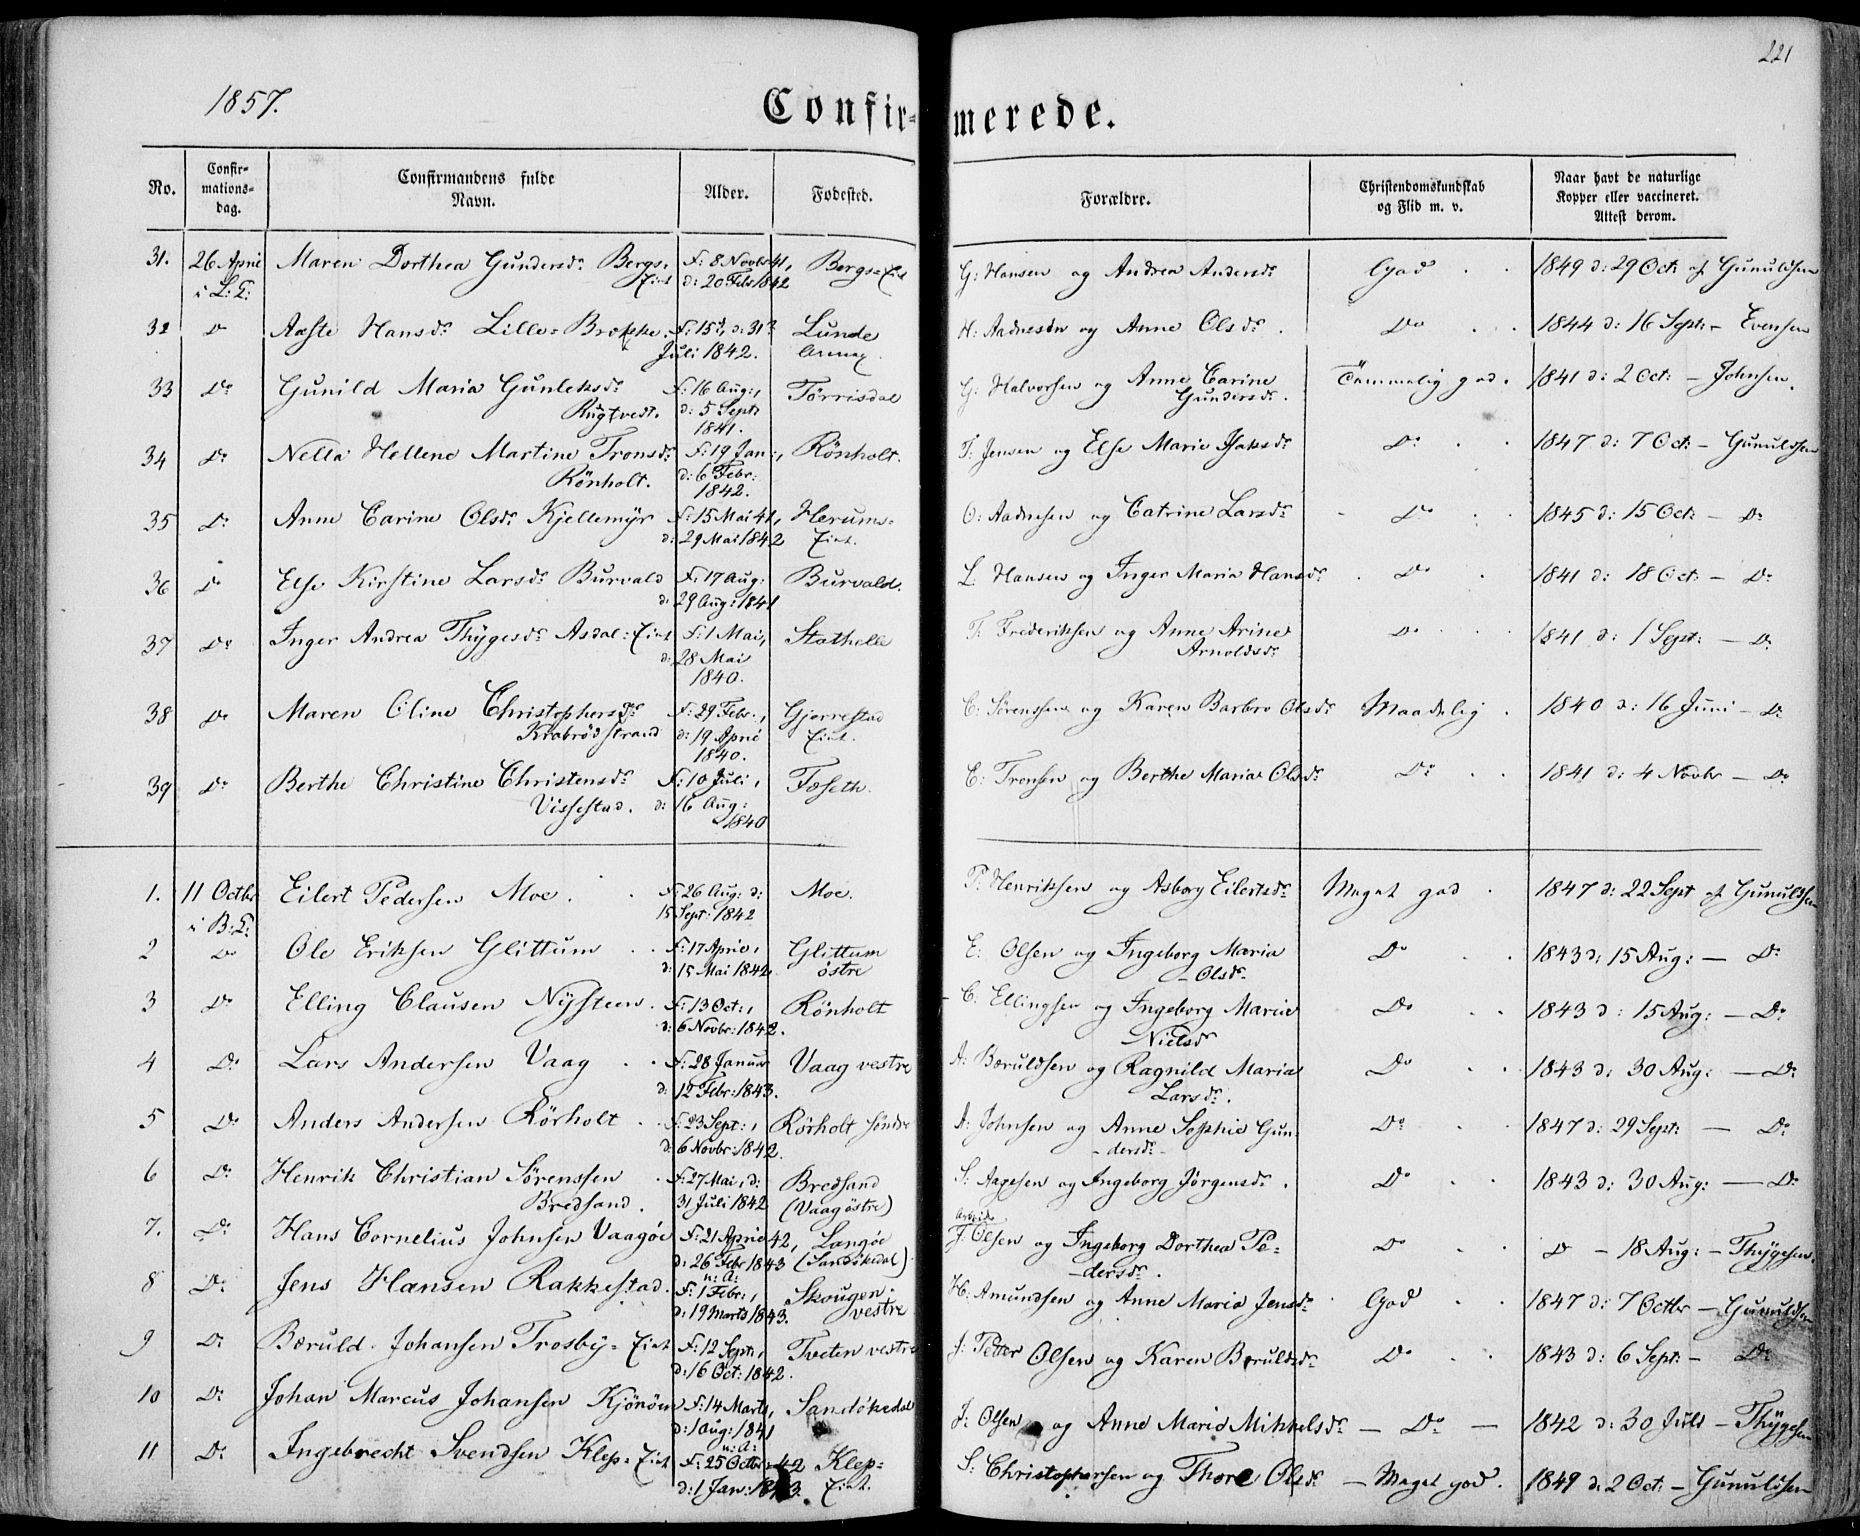 221
1857.
Confir-
merede.
No.
Confir-
mations-
dag.
Confirmandens fulde
Navn.
Alder.
Fødested.
Forældre.
Christendomskundskab
og Flid m. v.
Naar havt de naturlige
Kopper eller vaccineret.
Attest derom.
31. 26 April Maren Dorthea Gundersd: Bergs- F: 8 Novbr 41, Bergs-Eiet G: Hansen og Andrea Andersd: God 1849 d: 29 Oct: af Gunuldsen
i L: T: Eiet d: 20 Feb 1842
32 Do Aaste Hansd: Lille-Brække. F: 15d, d: 31te Lunde H: Aadnesøn og Anne Olsd: Do 1844 d: 16 Sept: - Evensen
Juli 1842. Annex.
33 Do Gunild Maria Gunleksd: F: 16 Aug:, Törrisdal G: Halvorsen og Anne Carine Temmelig god. 1841 d: 2 Oct: - Johnsen.
Rugtvedt. d: 5 Sept: Gundersd:
1841.
34 Do Nella Hellene Martine Tronsd: F: 19 Jan:, Rönholt. T: Jensen og Else Marie Isaksd: Do 1847 d: 7 Oct: - Gunuldsen
Rönholt. d: 6 Febr:
1842.
35 Do Anne Carine Olsd: Kjellemyr F: 15 Mai 41, Herums- O: Aadnesen og Catrine Larsd: Do 1845 d: 15 Oct: - Do
d: 29 Mai 1842 Eiet.
36 Do Else Kirstine Larsd: Burvald F: 17 Aug: Burvald. L: Hansen og Inger Maria Hansd: Do 1841 d: 18 Oct: - Do
d: 29 Aug: 1841
37 Do Inger Andrea Thygesd: Asdal-Eiet F: 1 Mai, Stathelle T: Frederiksen og Anne Arine Do 1841 d: 1 Sept: - Do
d: 28 Mai Arnoldsd:
1840.
38 Do Maren Oline Christophersd: F: 29 Febr:, Gjerrestad C: Sörensen og Karen Barbro Olsd: Maadelig 1840 d: 16 Juni - Do
Krabrödstrand d: 19 April Eiet.
1840.
39 Do Berthe Christine Christensd: F: 10 Juli, Fæseth. C: Tronsen og Berthe Maria Olsd: Do 1841 d: 4 Novbr - Do
Vissestad. d: 16 Aug:
1840
1. 11 Octbr Eilert Pedersen Moe. F: 26 Aug: d: Moe. P: Henriksen og Asborg Eilertsd: Meget god 1847 d: 22 Sept af Gunuldsen
i B: T: 15 Sept: 1842
2 Do Ole Eriksen Glittum F: 17 April, Glittum E: Olsen og Ingeborg Maria Do 1843 d: 15 Aug: - Do
d: 15 Mai 1842. östre Olsd:
3 Do Elling Clausen Nysteen. F: 13 Oct:, Rönholt C: Ellingsen og Ingeborg Maria Do 1843 d: 15 Aug: - Do
d: 6 Novbr: 1842. Nielsd:
4 Do Lars Andersen Vaag F: 28 Januar Vaag vestre A: Bæruldsen og Ragnild Maria Do 1843 d: 30 Aug: - Do
d: 12 Febr: 1843. Larsd:
5 Do Anders Andersen Rörholt F: 23 Sept:, Rörholt söndre A: Johnsen og Anne Sophie Gun- Do 1847 d: 29 Sept: - Do
d: 6 Novbr 1842. dersd:
6 Do Henrik Christian Sörenssen F: 27 Mai, d: Bredsand S: Aagesen og Ingeborg Jörgensd: Do 1843 d: 30 Aug: - Do
Bredsand. 31 Juli 1842 (Vaag östre)
7. Do Hans Cornelius Johnsen Vaagöe F: 21 April 42, Langöe J: Olsen og Ingeborg Dorthea Pe- Do Do - 18 Aug: - Thygesen.
d: 26 Febr 1843 (Sandökedal) dersd:
n: A:
8 Do Jens Hansen Rakkestad. F: 1 Febr:, Skougen H: Amundsen og Anne Maria Jensd: God 1847 d: 7 Octbr - Gunuldsen
d: 19 Marts 1843. vestre
9 Do Bæruld Johansen Trosby-Eiet F: 12 Sept:, Tveten vestre J: Petter Olsen og Karen Bæruldsd: Do 1843 d: 6 Sept: - Do
d: 16 Oct: 1842.
10 Do Johan Marcus Johansen Kjönöen F: 14 Marts, Sandökedal J: Olsen og Anne Maria Mikkelsd: - Do - 1842 d: 30 Juli - Thygesen
d: 1 Aug: 1841
n: A:
11 Do Ingebrecht Svendsen Klep-Eiet F: 25 Octbr 42 Klep- S: Christophersen og Thore Olsd: - Meget god. 1849 d: 2 Oct: - Gunuldsen
d: 1 Jan: 1843. Eiet.